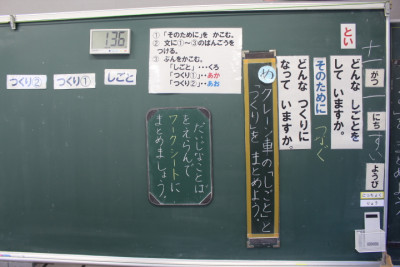 136
つくり②
つくり①
しごと
①「そのために」を かこむ。
②文に①~③のばんごうを
つける。
③ぶんをかこむ。
「しごと」・・・くろ
「つくり①」・・あか
「つくり②」・・あお
とい
どんな しごとを
して いますか。
そのために
つづく
どんな つくりに
なって いますか。
め
クレーン車の「しごと」と
「つくり」を まとめよう。
だいじなことば
をえらんで
ワークシートに
まとめましょう。
十一
がつ
にち
すい
ようび